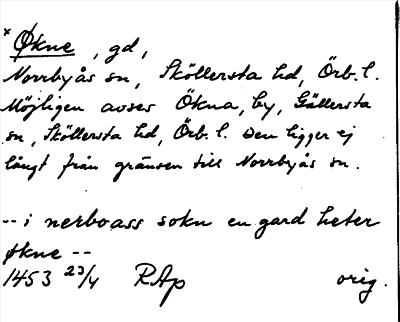 * Økne, gd,
Norrbyås sn, Sköllersta hd, Örb. l.
Möjligen avses Ökna, by, Gällersta
sn, Sköllersta hd, Örb. l. som ligger ej
långt från gränsen till Norrbyås sn.
-- i nerboass sokn en gard heter
økne --
1453 23/4 RAp orig.